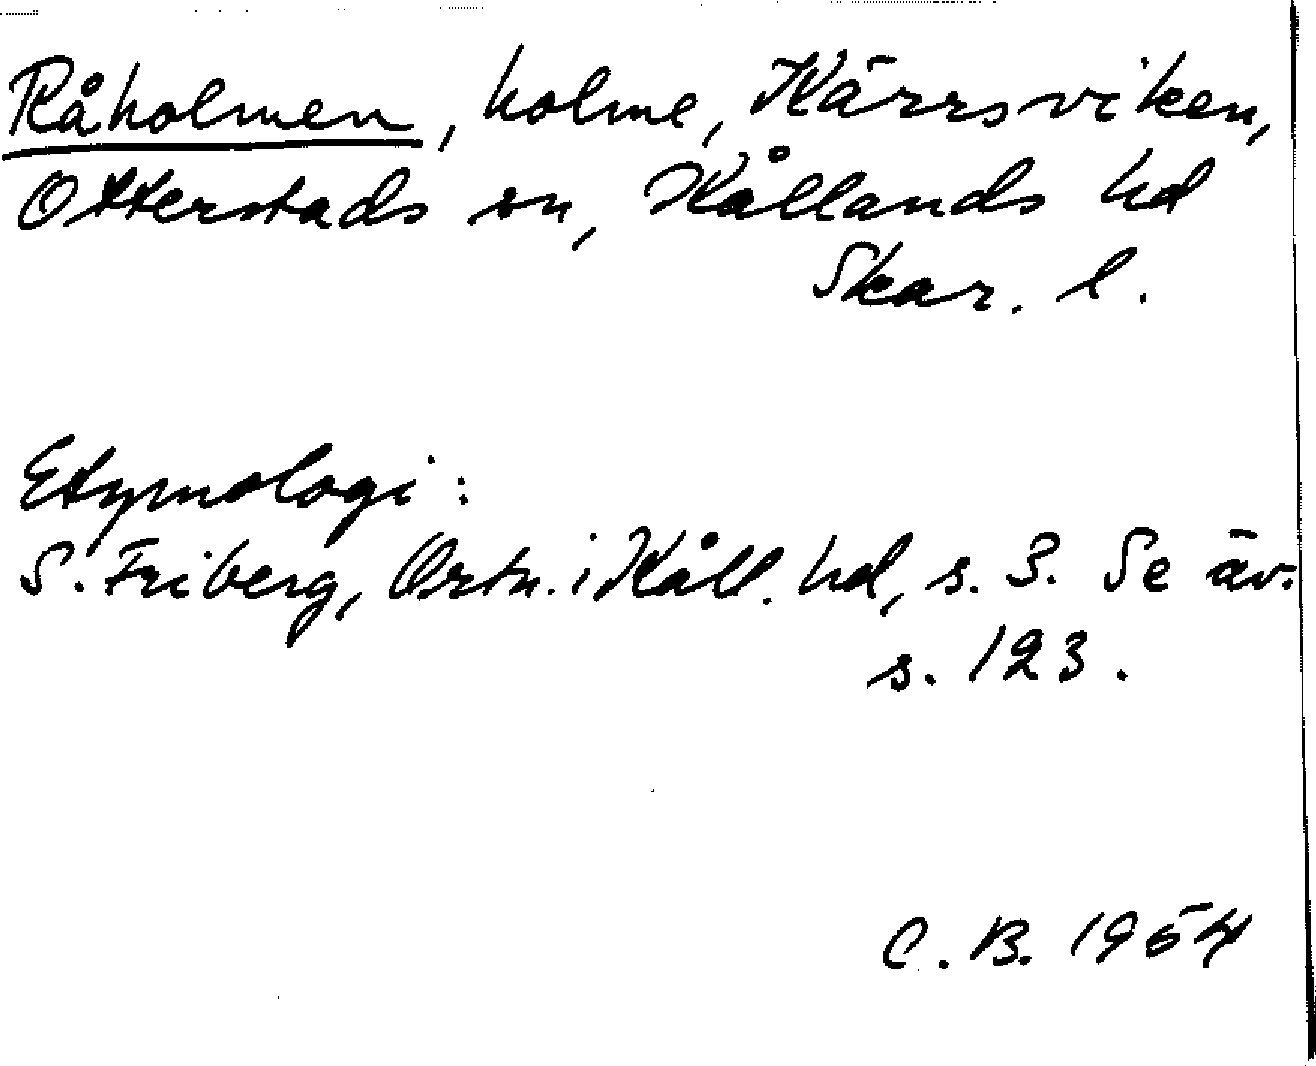 Råholmen, holme, Kärrsviken,
Otterstads sn, Kållands hd
Skar. l.
Etymologi:
S. Friberg, Ortn. i Kåll. hd, s. 3. Se äv.
s. 123.
C. B. 1954